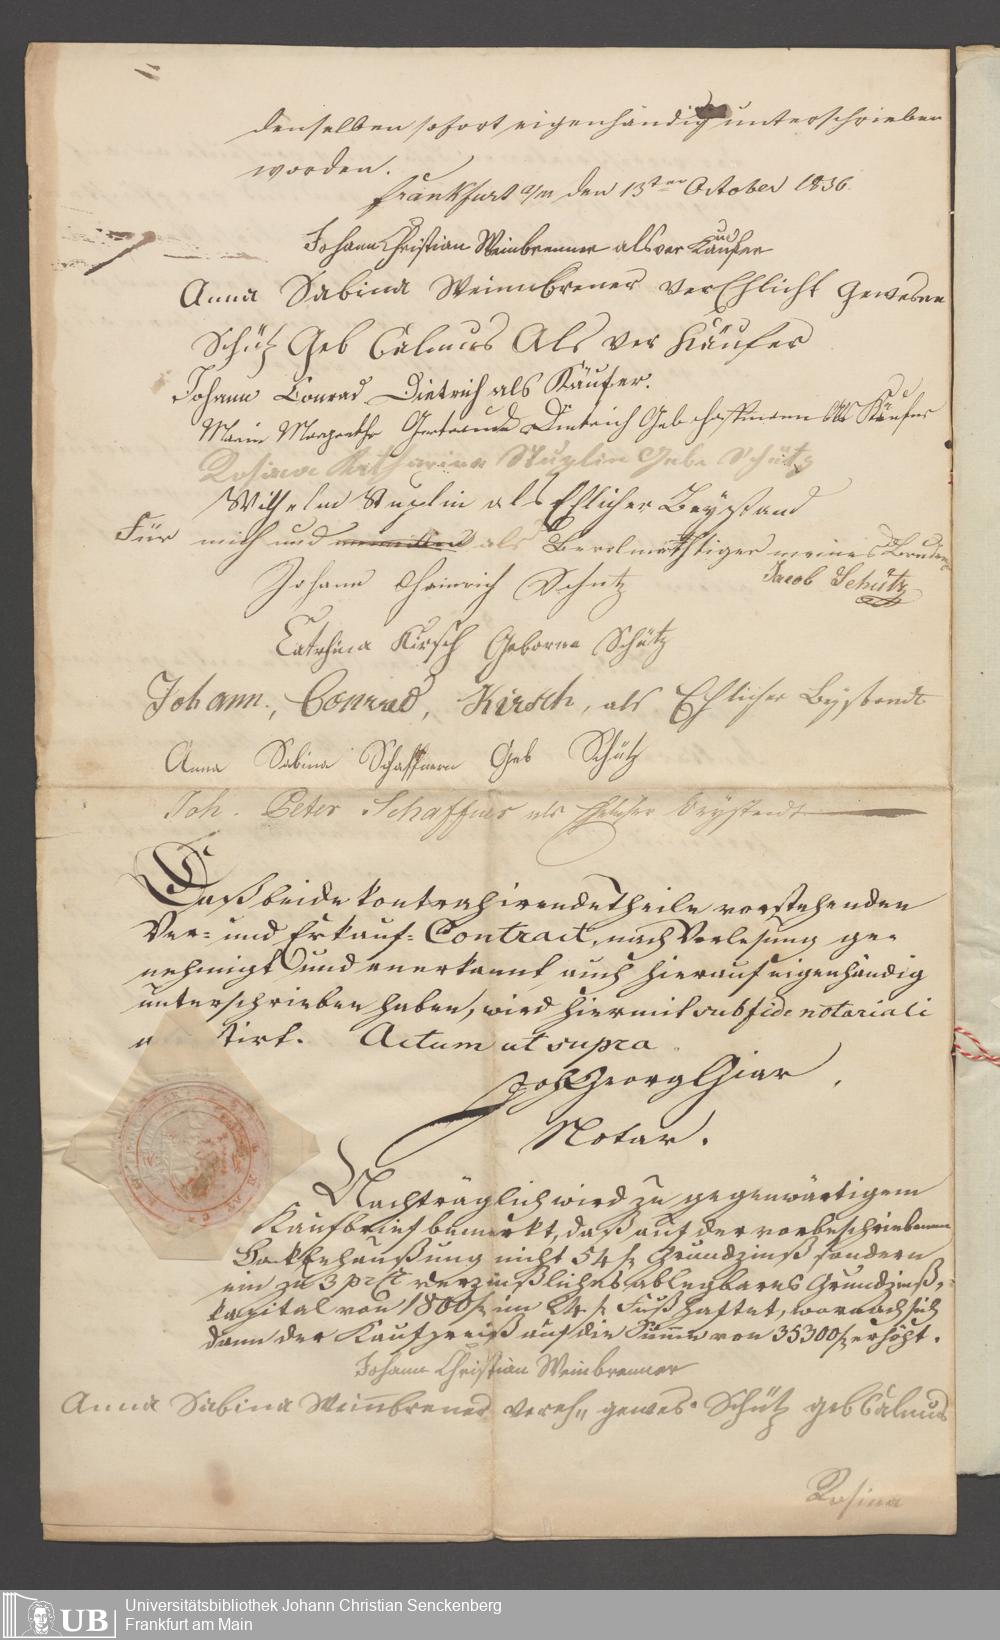 denselben sofort eigenhändig unterschrieben
worden.
Frankfurt a/m den 13ten October 1836.
Johann Christian Weinbrenner als ver Käufer
Anna Sabina Weinnbrener verEhlicht gewesne
Schütz Geb Calmus Als ver Käufer
Johann Conrad Dietrich als Käufer.
Maria Margrethe Gertrude Dietrich Geb Hoffmann als Käufer
Rosina Katharina Stuplin Gebe Schütz
Wilhelm Stuplin als Ehlicher Beystand
Für mich und als Bevolmächtiger meines Bruders
Jacob Schütz
Johann Heinrich Schutz
Catrhina Kirsch Geborne Schütz
Johann, Conrad, Kirsch, als Ehlicher Beystandt
Anna Sabina Schaffnern Geb Schütz
Joh. Peter Schaffner als Ehlicher Beystandt
Daß beide kontrahirende Theile vorstehenden
Ver- und Erkauf-Contract, nach Vorlesung ge-
nehmigt und anerkannt, auch hierauf eigenhändig
unterschrieben haben, wird hiermit sub fide notariali
Actum ut supra
Joh Georg Giar
Notar.
Nachträglich wird zu gegenwärtigem
Kaufbrief bemerkt, daß auf der vorbeschriebenen
Backbehaußung nicht 54 f. Grundzinß sondern
ein zu 3 prCt verzinßliches ablegbares Grundzinß-
kapital von 1800 f. im 24 f. Fuß haftet, wornach sich
dann der Kaufpreiß auf die Summe von 35300 f. erhöht.
Johann Christian Weinbrenner
Anna Sabina Weinnbrener vereh„ gewes. Schütz geb Calmus
Rosina
UB
Universitätsbibliothek Johann Christian Senckenberg
Frankfurt am Main